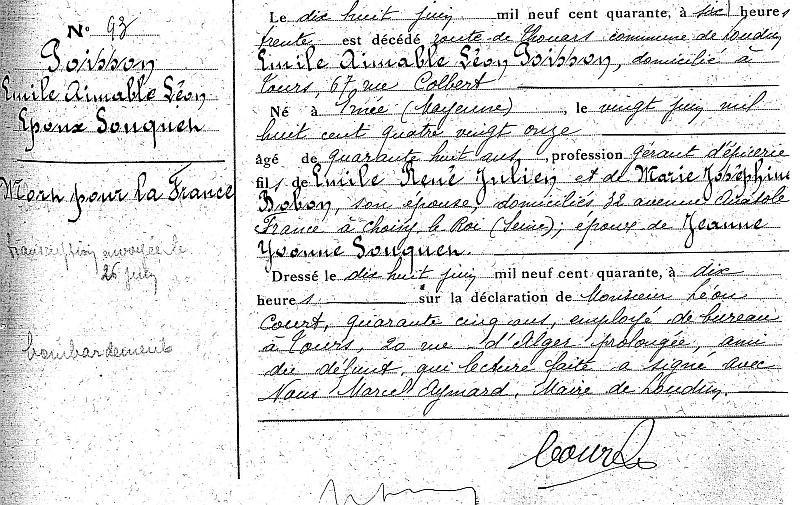 N° 93
Poisson
Emile Aimable Léon
Epoux Souquen
Mort pour la France
transcription envoyée le
26 juin
bombardement
Le dix huit juin mil neuf cent quarante, à six heures
trente est décédé route de Thouars commune de Loudun
Emile Aimable Léon Poisson, domicilié à
Tours, 67 rue Colbert
Né à (Mayenne), le vingt juin mil
huit cent quatre vingt onze
âgé de quarante huit ans, profession gérant d'épicerie
fils de Emile René Julien et de Marie Joséphine
Bobon, son épouse, domiciliés 32 avenue Anatole
France à Choisy le Roi (Seine); époux de Jeanne
Yvonne Souquen.
Dressé le dix huit juin mil neuf cent quarante, à dix
heures sur la déclaration de Monsieur Léon
Court, quarante cinq ans, employé de bureau
à Tours, 20 rue d'Alger prolongée, ami
du défunt, qui lecture faite a signé avec
Nous Marcel Aymard, Maire de Loudun.